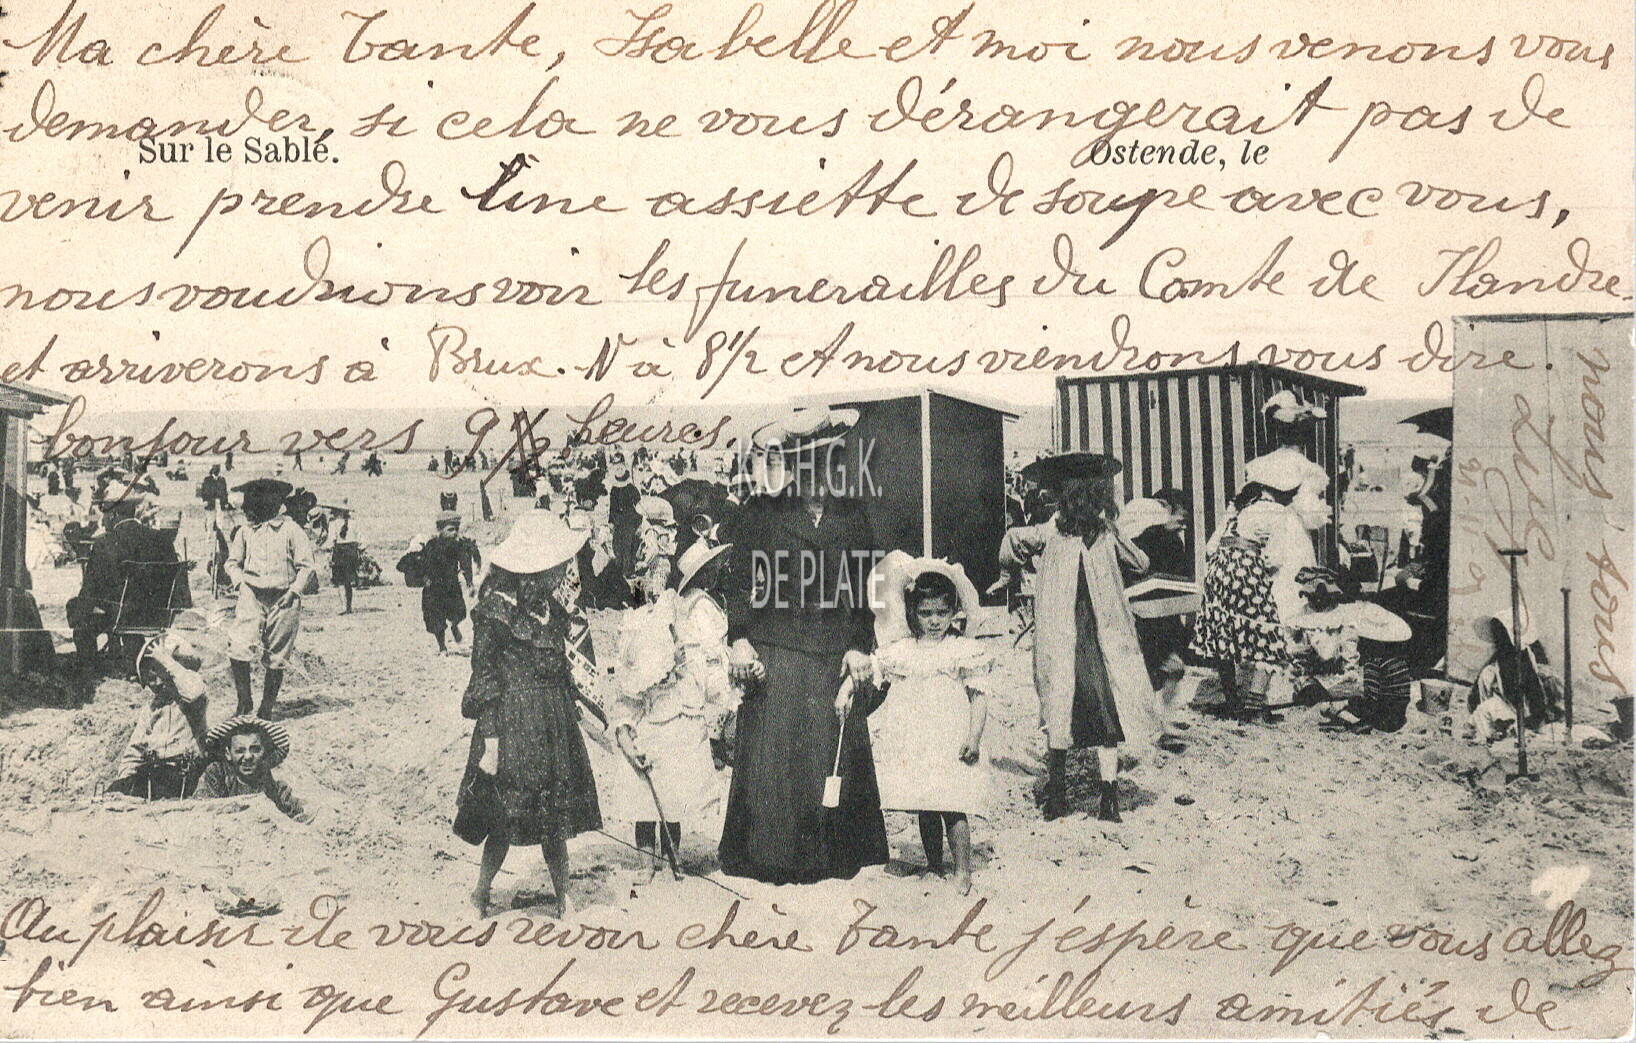 Ma chère Tante, Isabelle et moi nous venons vous
demander, si cela ne vous dérangerait pas de
Sur le Sable.
Ostende, le
venir prendre une assiette de soupe avec vous,
nous voudrions voir les funerailles du Comte de Flandre
et arriverons à Brux. N à 8 1/2 et nous viendrons vous dire
bonjour vers 9 heures.
K.O.H.G.K.
DE PLATE
Au plaisir de vous revoir chère Tante j'éspère que vous allez
bien ainsi que Gustave et recevez les meilleurs amitiés de
nous tous